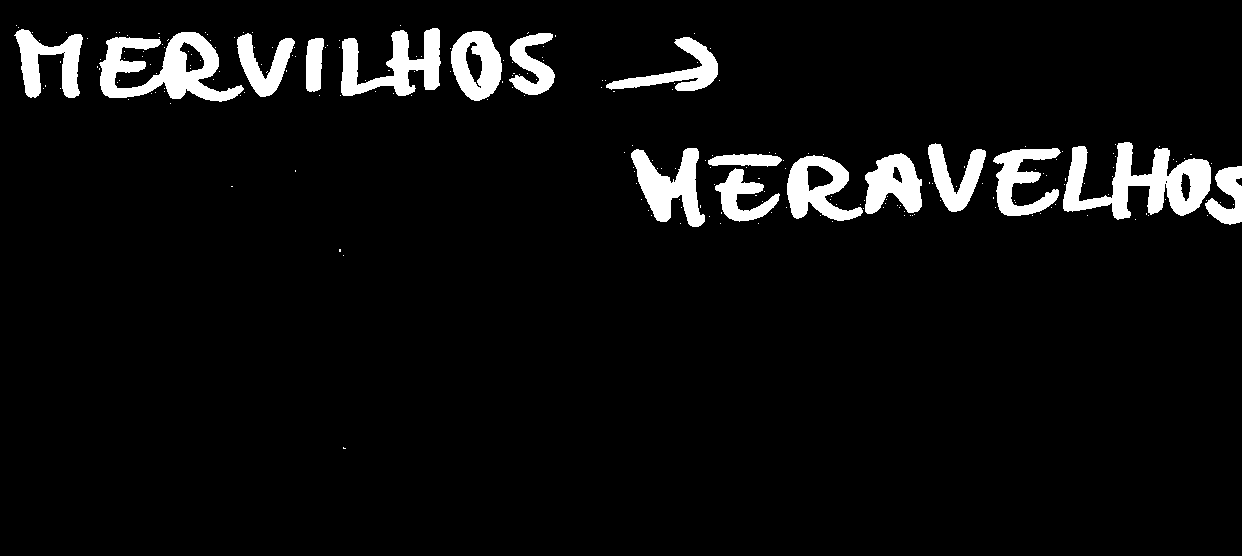 MERVILHOS →
MERAVELHOS